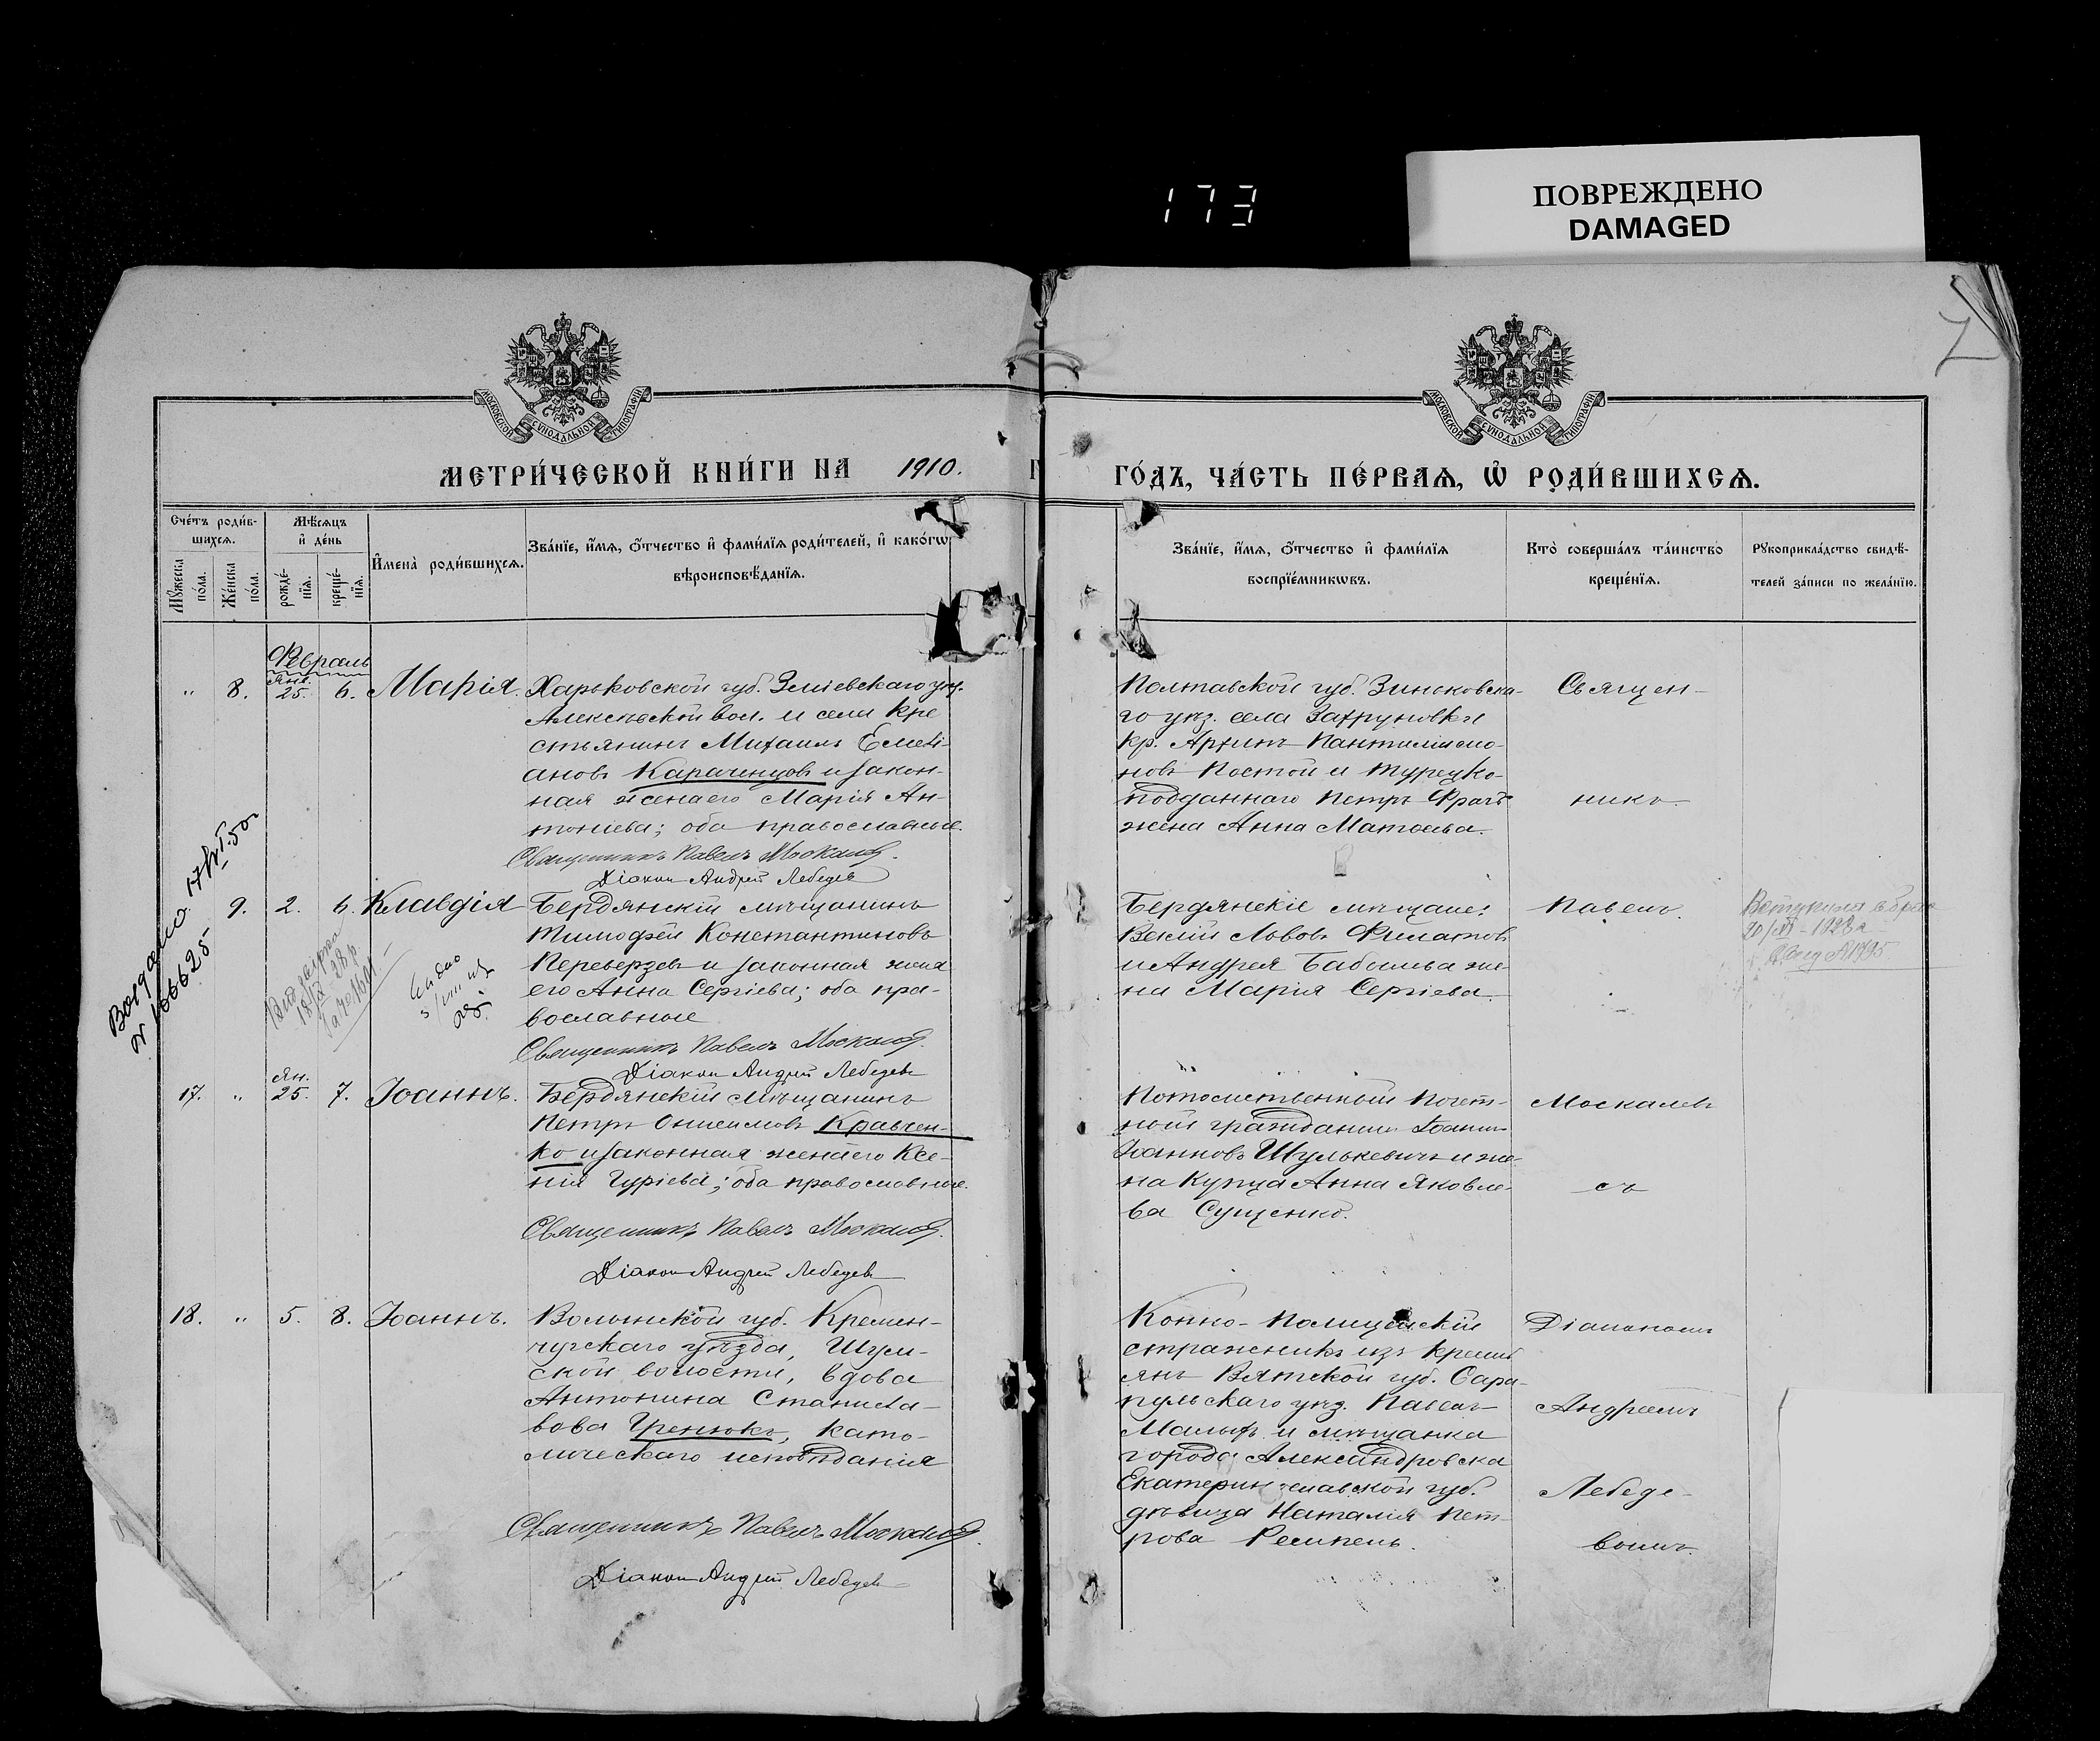 173
ПОВРЕЖДЕНО
DAMAGED
МОСКОВСКОЙ СѴНОДАЛЬНОЙ ТИПОГРАФІИ
МОСКОВСКОЙ СѴНОДАЛЬНОЙ ТИПОГРАФІИ
МЕТРИ́ЧЕСКОЙ КНИ́ГИ НА 1910. Г
ГО́ДЪ, ЧА́СТЬ ПЕ́РВАѦ, Ѡ҆ РОДИ́ВШИХСѦ.
Сче́тъ роди́в-
шихсѧ.
Мꙋ́жеска по́ла.
Же́нска по́ла.
Мѣ́сѧцъ
и҆ де́нь
рожде́-
нїѧ.
креще́-
нїѧ.
И҆мена̀ роди́вшихсѧ.
Зва́нїе, и҆́мѧ, ѻ҆́тчество и҆ фами́лїѧ роди́телей, и҆ како́гѡ
вѣроисповѣ́данїѧ.
Зва́нїе, и҆́мѧ, ѻ҆́тчество и҆ фами́лїѧ
воспрїе́мникѡвъ.
Кто̀ соверша́лъ та́инство
креще́нїѧ.
Рꙋкоприкла́дство свидѣ́-
телей за́писи по жела́нїю.
Февраль
" 8. Янв. 25. 6. Марія.
Харьковской губ. Зміевскаго уѣз.
Алексѣевской вол. и села кре
стьянинъ Михаилъ Емелі-
ановъ Караченцовъ и закон-
ная жена его Марія Ан-
тоніева; оба православные.
Священникъ Павелъ Москалевъ.
Діаконъ Андрей Лебедевъ
Полтавской губ. Зиньковска-
го уѣз. села
кр. Архипъ Пантилимоно-
новъ Постой и турецко-
подданнаго Петра
жена Анна Матвеева.
Священ-
никъ
9. 2. 6. Клавдія
Бердянскій мѣщанинъ
Тимофей Константиновъ
Переверзевъ и законная жена
его Анна Сергіева; оба пра-
вославные
Священникъ Павелъ Москалевъ.
Діаконъ Андрей Лебедевъ
Бердянскіе мѣщане:
Львовъ Филатовъ
и Андрея Бабышева же-
на Марія Сергіева.
Павелъ
Вступила в брак
№ 1995
Выдано 17/VI.50
№ 166625
17. " Ян. 25. 7. Іоаннъ.
Бердянскій мѣщанинъ
Петръ Онисимовъ Кравчен-
ко и законная жена его Ксе-
нія Гуріева; оба православные.
Священникъ Павелъ Москалевъ.
Діаконъ Андрей Лебедевъ
Потомственный почет-
ный гражданинъ Іоаннъ
Іоанновъ Шулькевичъ и же-
на купца Анна Яковле-
ва Сущенко.
Москалевъ
съ
18. " 5. 8. Іоаннъ.
Волынской губ. Кремен-
чугскаго уѣзда, Шум-
ской волости, вдова
Антонина Станисла-
вова Гренюкъ, като-
лическаго исповѣданія
Священникъ Павелъ Москалевъ.
Діаконъ Андрей Лебедевъ
Конно-полицейскій
стражникъ изъ крестьі
янъ Вятской губ. Сара-
пульскаго уѣз. Павелъ
Малыхъ и мѣщанка
города Александровска
Екатеринославской губ.
дѣвица Наталія Пет-
рова Ремпень.
Діакономъ
Андреемъ
Лебеде-
вымъ.